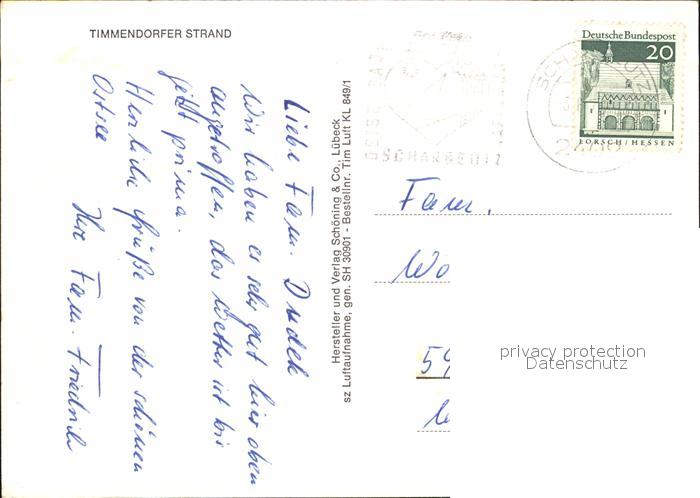 TIMMENDORFER STRAND
Liebe Fam. Dudek
Wir haben es sehr gut hier oben
angetroffen, das Wetter ist bis
jetzt prima.
Herzliche Grüße von der schönen
Ostsee
Ihre Fam. Friedrich
Hersteller und Verlag Schöning & Co., Lübeck
sz Luftaufnahme, gen. SH 30901 - Bestellnr. Tim Luft KL 849/1
SCHARBEUTZ
Deutsche Bundespost
20
LORSCH/HESSEN
Fam.
Wo
59
privacy protection
Datenschutz